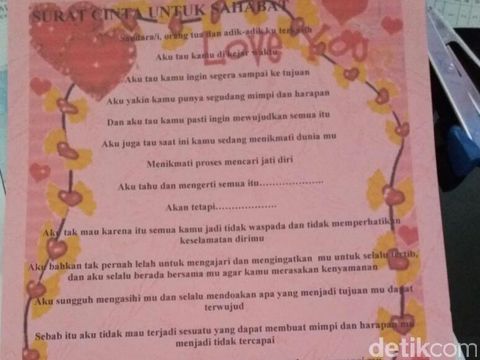 SURAT CINTA UNTUK SAHABAT
Saudara/i, orang tua dan adik-adik ku terkasih
LOVE YOU
Aku tau kamu di kejar waktu
Aku tau kamu ingin segera sampai ke tujuan
Aku yakin kamu punya segudang mimpi dan harapan
Dan aku tau kamu pasti ingin mewujudkan semua itu
Aku juga tau saat ini kamu sedang menikmati dunia mu
Menikmati proses mencari jati diri
Aku tahu dan mengerti semua itu....................
Akan tetapi...................
Aku tak mau karena itu semua kamu jadi tidak waspada dan tidak memperhatikan
keselamatan dirimu
Aku bahkan tak pernah lelah untuk mengajari dan mengingatkan mu untuk selalu tertib,
dan aku selalu berada bersama mu agar kamu merasakan kenyamanan
Aku sungguh mengasihi mu dan selalu mendoakan apa yang menjadi tujuan mu dapat
terwujud
Sebab itu aku tidak mau terjadi sesuatu yang dapat membuat mimpi dan harapan mu
menjadi tidak tercapai
detikcom